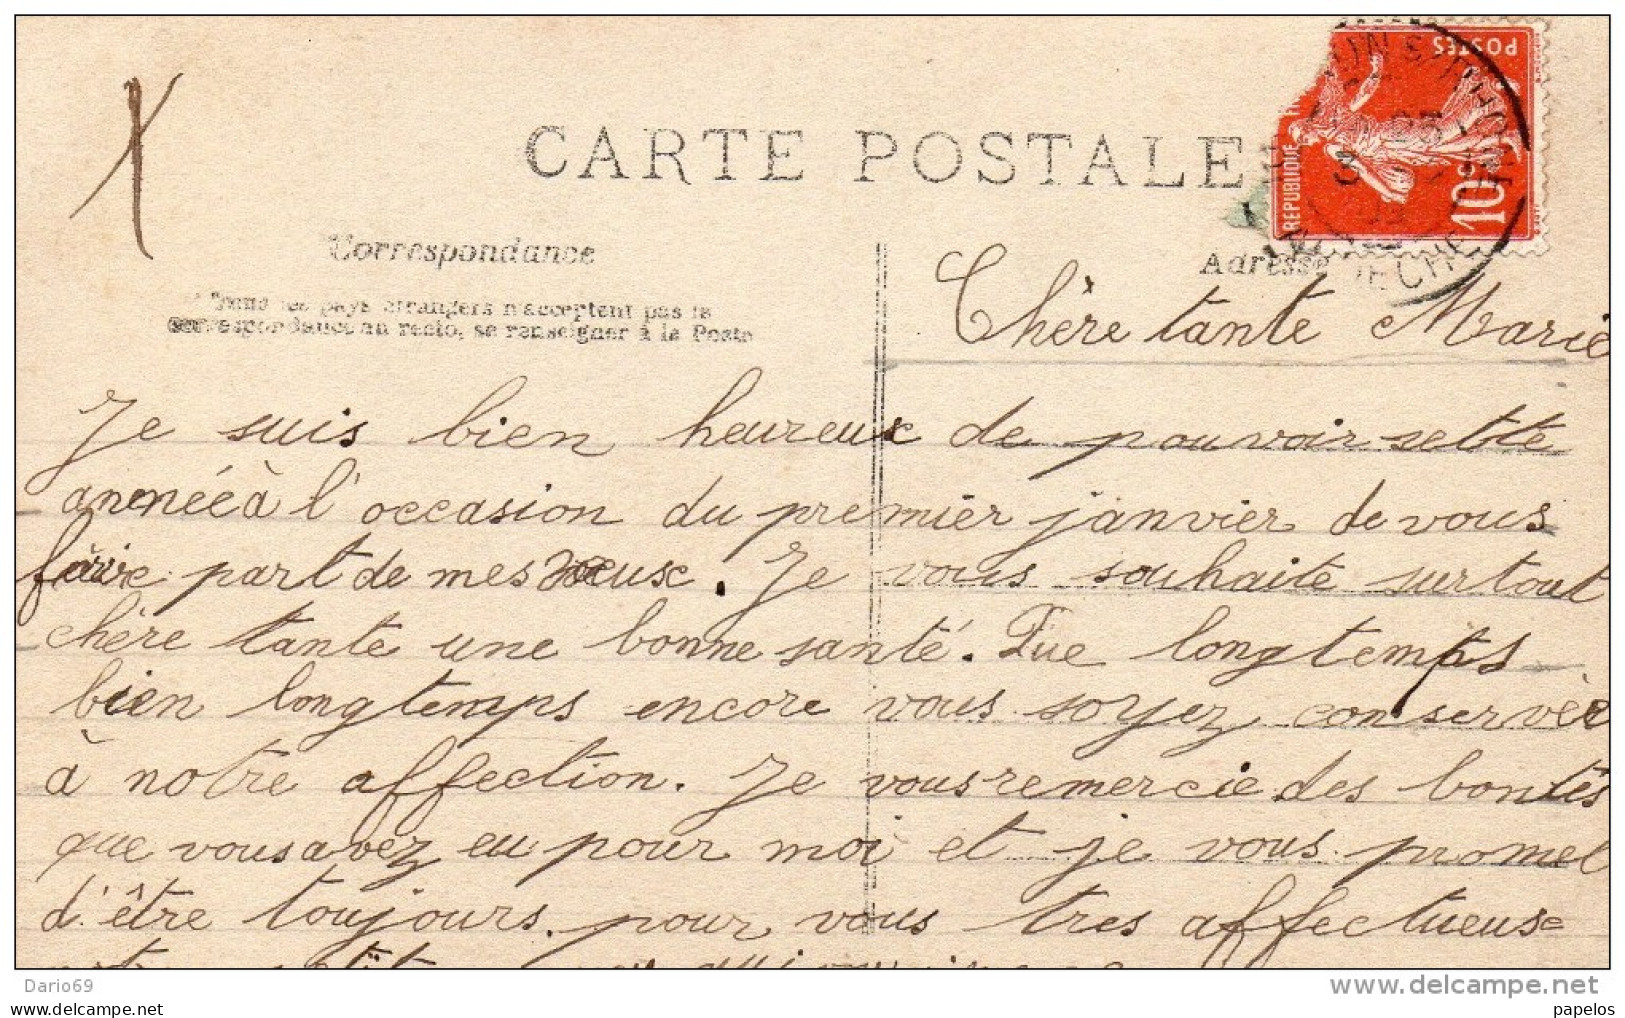 CARTE POSTALE
POSTES
REPUBLIQUE
10c
25
3
Correspondance
Tous les pays étrangers n'acceptent pas la
correspondance au recto, se renseigner à la Poste
Adresse
Chère tante Marie
Je suis bien heureux de pouvoir sette
année à l'occasion du premier janvier de vous
faire part de mes vœux. Je vous souhaite surtout
chère tante une bonne santé. Que longtemps
bien longtemps encore vous soyez conservée
à notre affection. Je vous remercie des bontés
que vous avez eu pour moi et je vous promet
d'être toujours. pour vous tres affectueuse
Dario69
www.delcampe.net
papelos